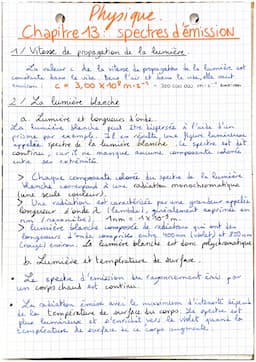 Physique.
Chapitre 13 : spectres d'émission
1/ Vitesse de propagation de la lumière
La valeur c de la vitesse de propagation de la lumière est
constante dans le vide. Dans l'air et dans le vide, elle vaut
environ : c = 3,00 x 10⁸ m·s⁻¹ = 300 000 000 m·s⁻¹ environ
2/ La lumière blanche
a. Lumière et longueurs d'onde
La lumière blanche peut être dispersée à l'aide d'un
prisme par exemple : il en résulte une figure lumineuse
appelée spectre de la lumière blanche, le spectre est dit
continu, car il ne manque aucune composante colorée
entre ses extrémités.
> Chaque composante colorée du spectre de la lumière
blanche correspond à une radiation monochromatique
(une seule couleur).
> Une radiation est caractérisée par une grandeur appelée
longueur d'onde λ (lambda), généralement exprimée en
nm (nanomètre) : 1nm = 1x10⁻⁹ m.
> lumière blanche composée de radiations qui ont des
longueurs d'onde comprises entre 400 nm (violet) et 800 nm
(rouge) environ. La lumière blanche est donc polychromatique
b. Lumière et température de surface.
Le spectre d'émission du rayonnement émis par
un corps chaud est continu.
La radiation émise avec le maximum d'intensité dépend
de la température de surface du corps. Le spectre est
plus lumineux et s'enrichit vers le violet quand la
température de surface de ce corps augmente.